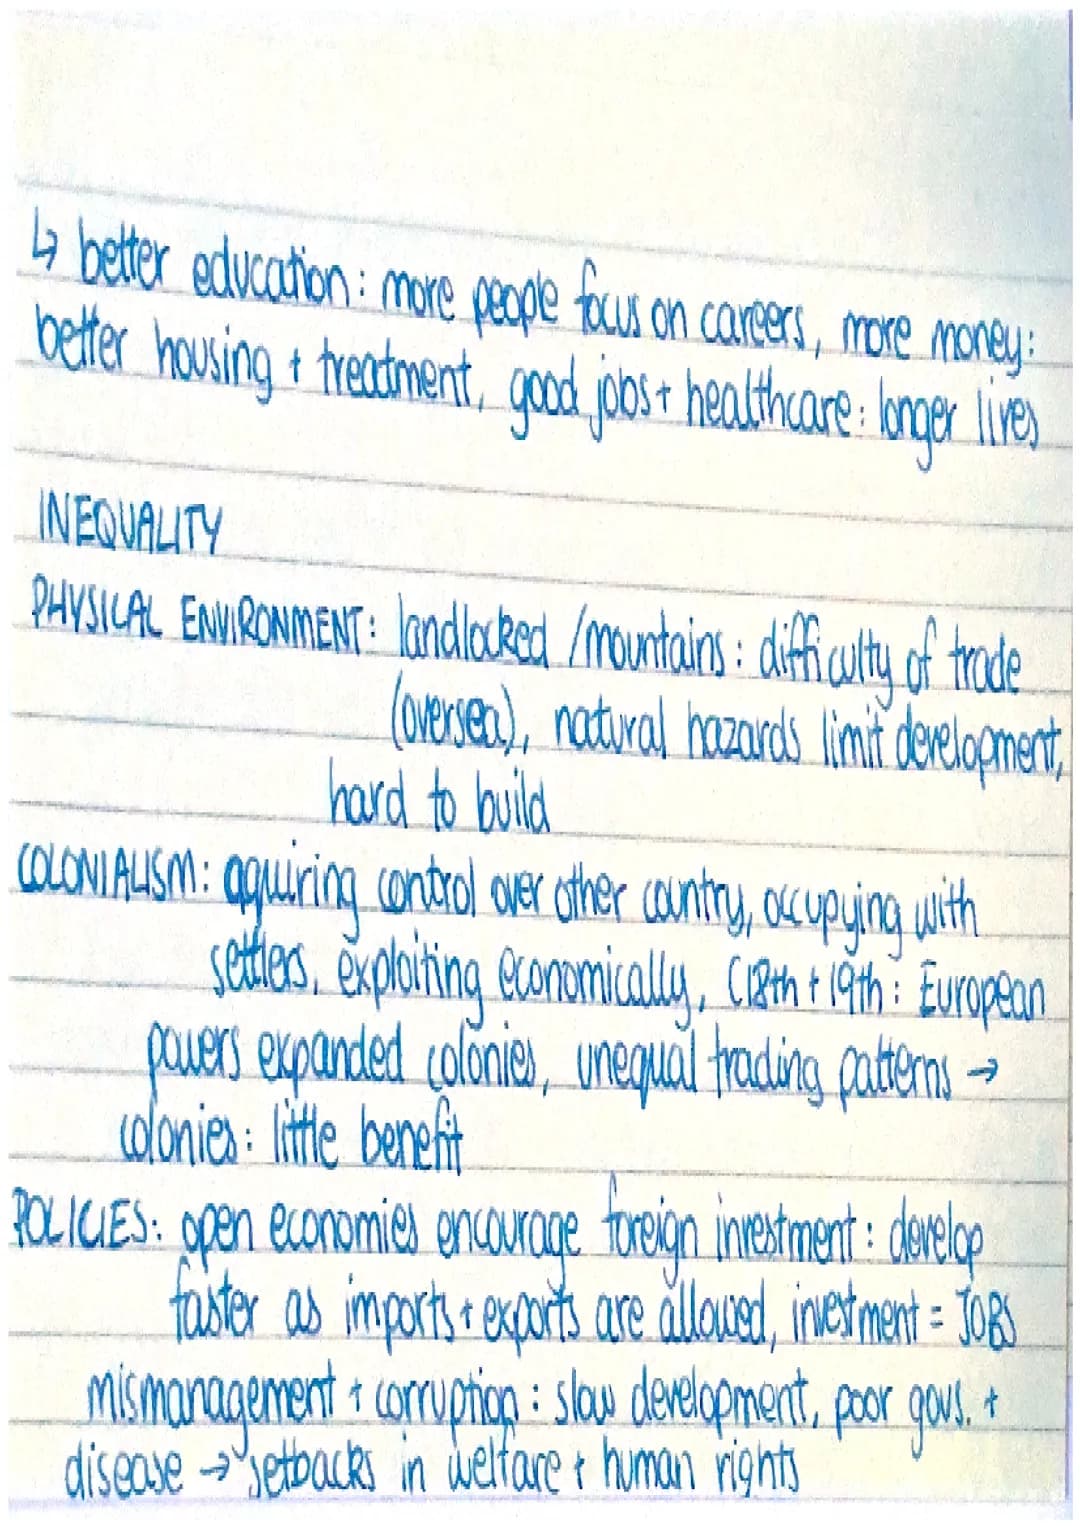 ↳ better education: more people focus on careers, more money:
better housing + treatment, good jobs + healthcare: longer lives
INEQUALITY
PHYSICAL ENVIRONMENT: landlocked / mountains: difficulty of trade
(oversea), natural hazards limit development,
hard to build
COLONIALISM: aquiring control over other country, occupying with
settlers, exploiting economically, C18th + 19th: European
powers expanded colonies, unequal trading patterns →
colonies: little benefit
POLICIES: open economies encourage foreign investment: develop
faster as imports + exports are allowed, investment = JOBS
mismanagement + corruption: slow development, poor govs. +
disease → setbacks in welfare + human rights